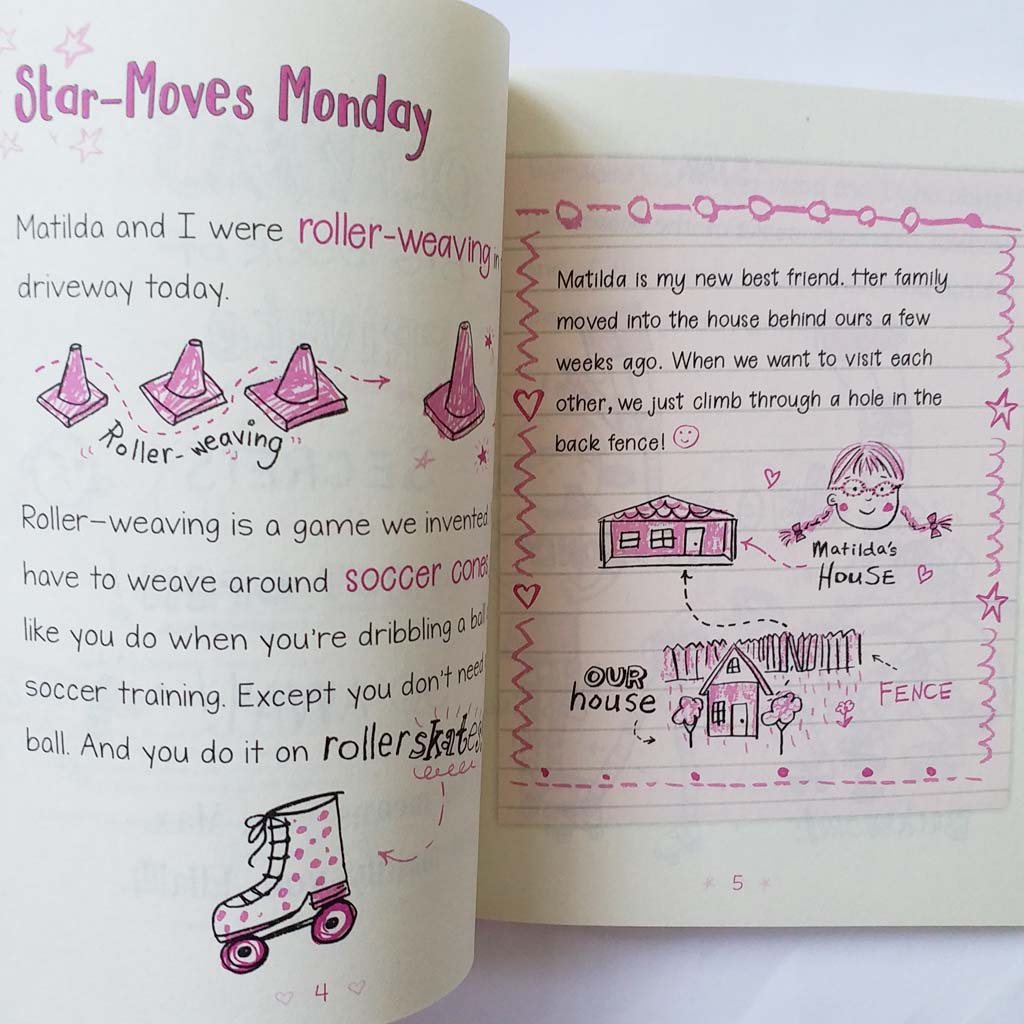 Star-Moves Monday
Matilda and I were roller-weaving in
driveway today.
"Roller-weaving"
Roller-weaving is a game we invented
have to weave around soccer cones
like you do when you're dribbling a ball
soccer training. Except you don't need
ball. And you do it on rollerskates
4
Matilda is my new best friend. Her family
moved into the house behind ours a few
weeks ago. When we want to visit each
other, we just climb through a hole in the
back fence!
Matilda's
House
OUR
house
FENCE
5